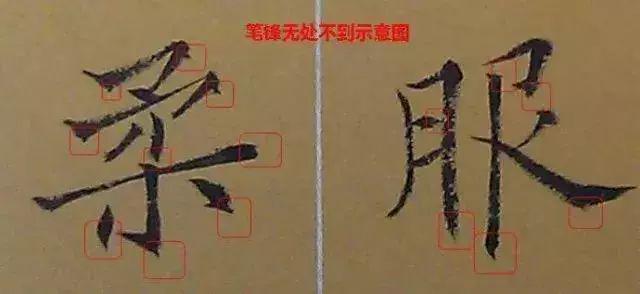 笔锋无处不到示意图
柔 服